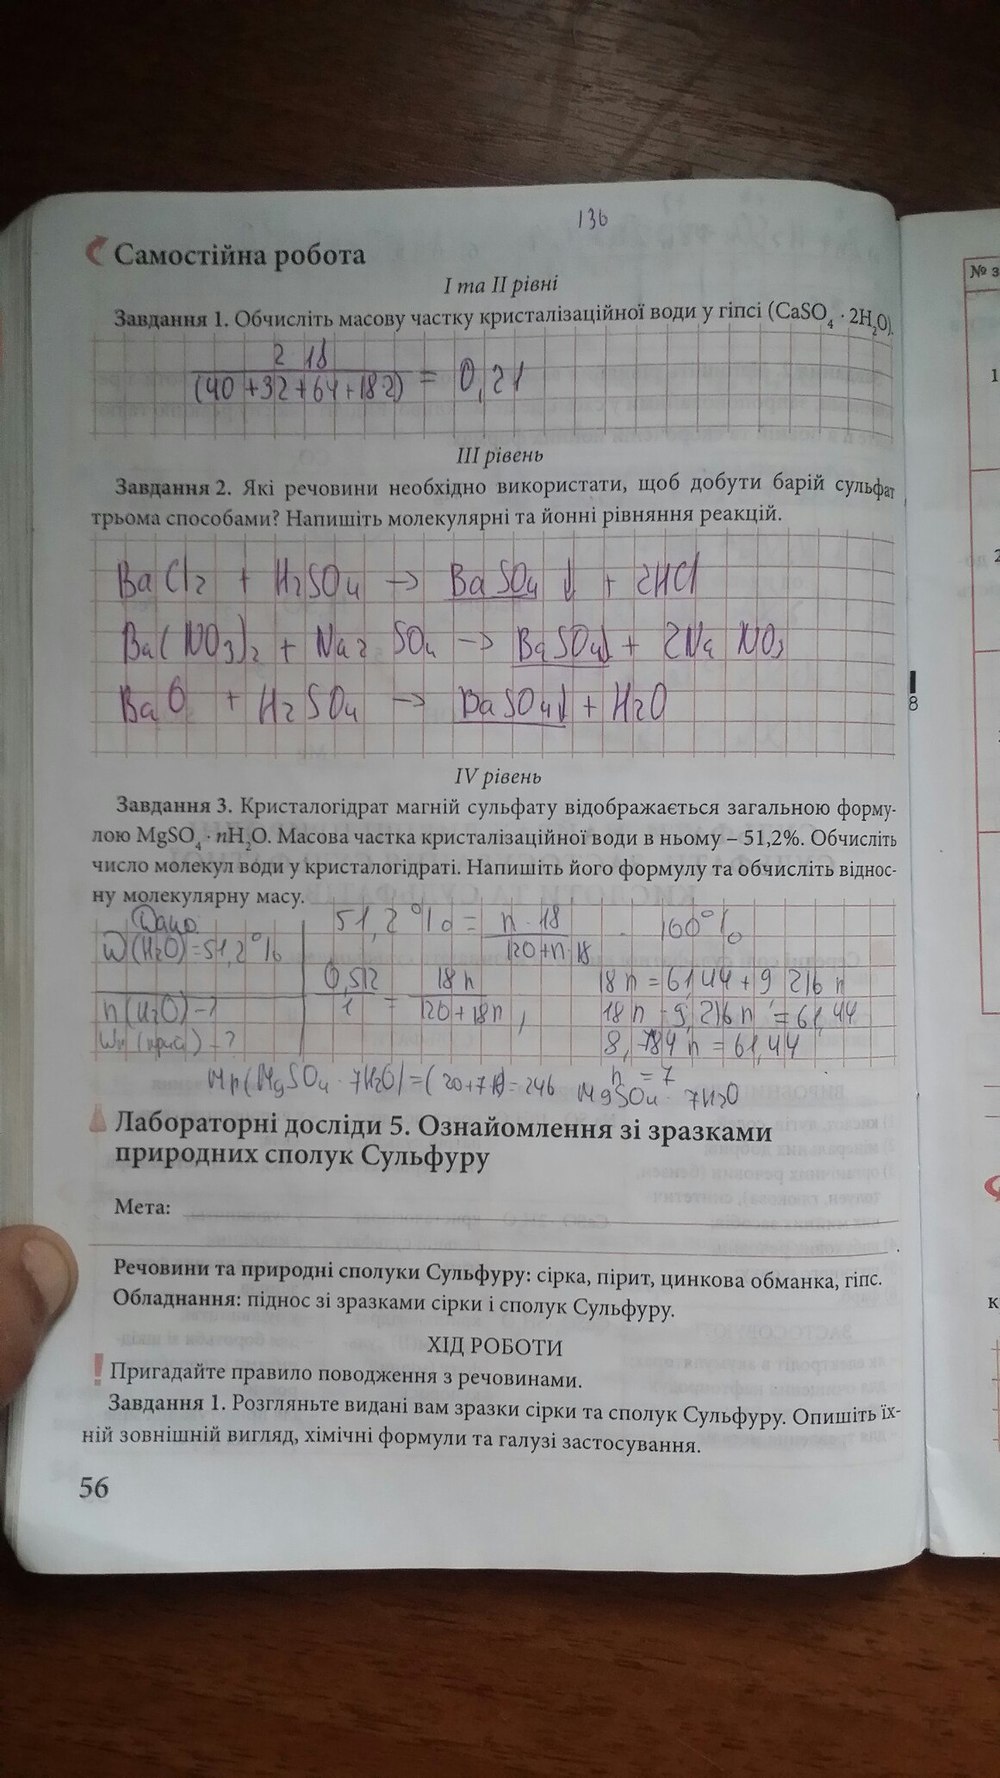 136
Самостійна робота
І та ІІ рівні
Завдання 1. Обчисліть масову частку кристалізаційної води у гіпсі (CaSO₄ · 2H₂O).
2 18
(40 + 32 + 64 + 18 2) = 0,21
ІІІ рівень
Завдання 2. Які речовини необхідно використати, щоб добути барій сульфат
трьома способами? Напишіть молекулярні та йонні рівняння реакцій.
BaCl₂ + H₂SO₄ → BaSO₄↓ + 2HCl
Ba(NO₃)₂ + Na₂SO₄ → BaSO₄↓ + 2NaNO₃
BaO + H₂SO₄ → BaSO₄↓ + H₂O
ІV рівень
Завдання 3. Кристалогідрат магній сульфату відображається загальною форму-
лою MgSO₄ · nH₂O. Масова частка кристалізаційної води в ньому – 51,2%. Обчисліть
число молекул води у кристалогідраті. Напишіть його формулу та обчисліть віднос-
ну молекулярну масу.
Дано 51,2% = n · 18 / 120+n·18 · 100%
W(H₂O)=51,2%
0,512 / 1 = 18n / 120+18n, 18n = 61,44 + 9,216n
n(H₂O)-? 18n - 9,216n = 61,44
8,784n = 61,44
n = 7
Mr(MgSO₄ · 7H₂O) = = 246 MgSO₄ · 7H₂O
Лабораторні досліди 5. Ознайомлення зі зразками
природних сполук Сульфуру
Мета:
Речовини та природні сполуки Сульфуру: сірка, пірит, цинкова обманка, гіпс.
Обладнання: піднос зі зразками сірки і сполук Сульфуру.
ХІД РОБОТИ
! Пригадайте правило поводження з речовинами.
Завдання 1. Розгляньте видані вам зразки сірки та сполук Сульфуру. Опишіть їх-
ній зовнішній вигляд, хімічні формули та галузі застосування.
56
№ з
8